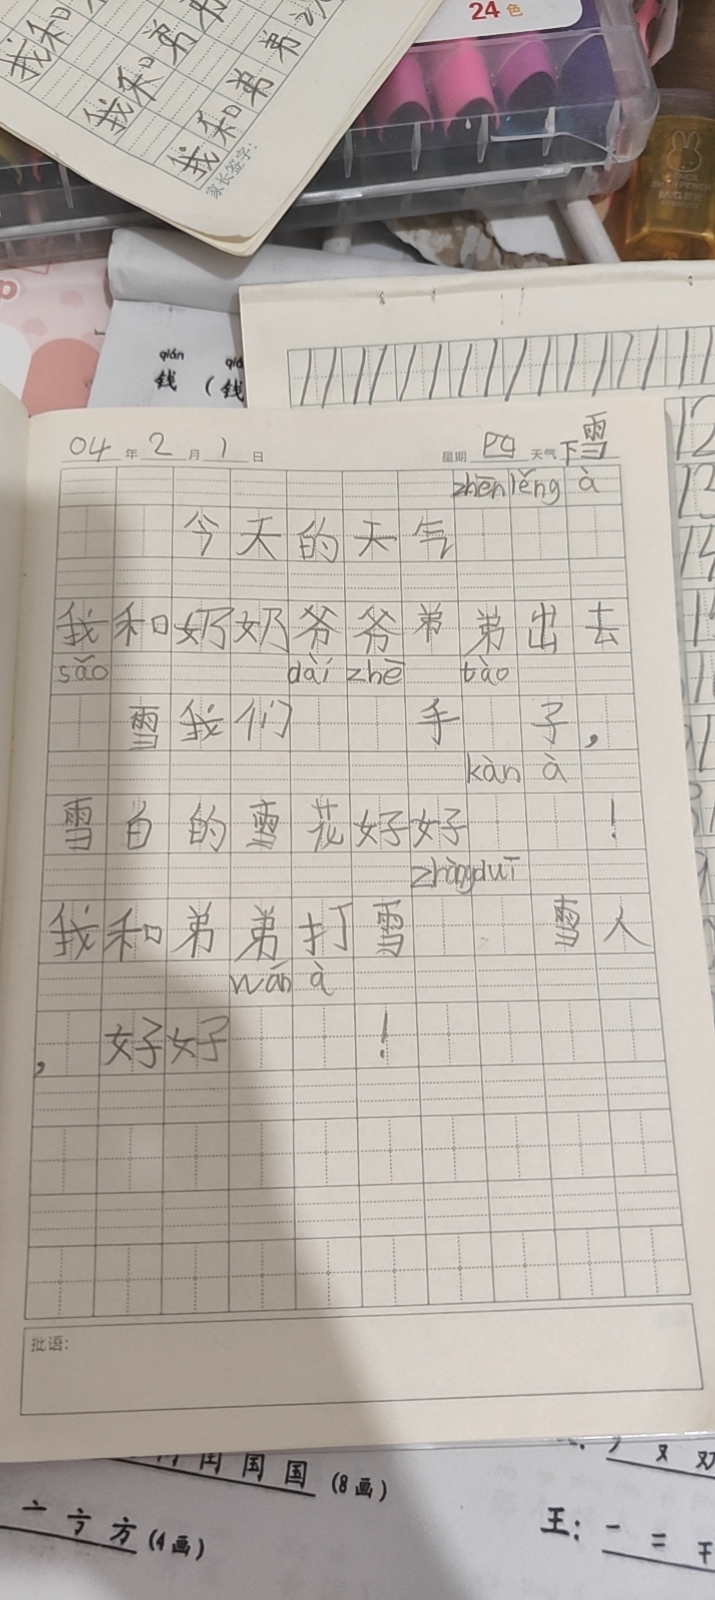 24 色
我和
我和弟弟
我和弟弟
我和弟
家长签字：
qián
钱（钱
04 年 2 月 1 日 星期 四 天气 下雪
zhēn lěng à
今天的天气
我和奶奶爷爷弟弟出去
sǎo dài zhē tào
雪我们 手 子，
kàn à
雪白的雪花好好 ！
zhāng duī
我和弟弟打雪 雪人
wán à
， 好好 ！
批语：
国 国 (8画)
方 (4画)
王: 一 二 干